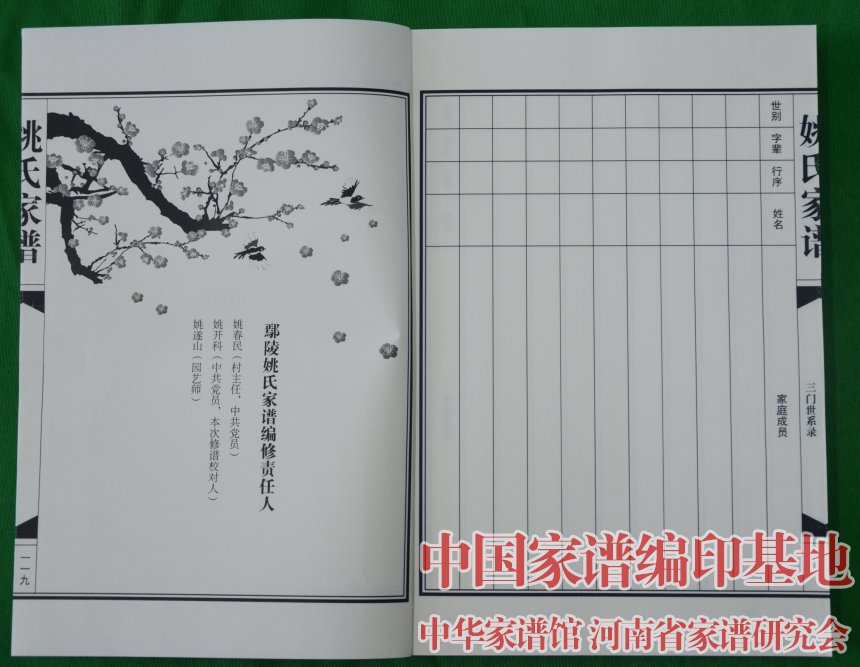 姚氏家谱
鄢陵姚氏家谱编修责任人
姚春民（村主任，中共党员）
姚开科（中共党员，本次修谱校对人）
姚遂山（园艺师）
一一九
姚氏家谱
三门世系录
世别
字辈
行序
姓名
家庭成员
中国家谱编印基地
中华家谱馆 河南省家谱研究会